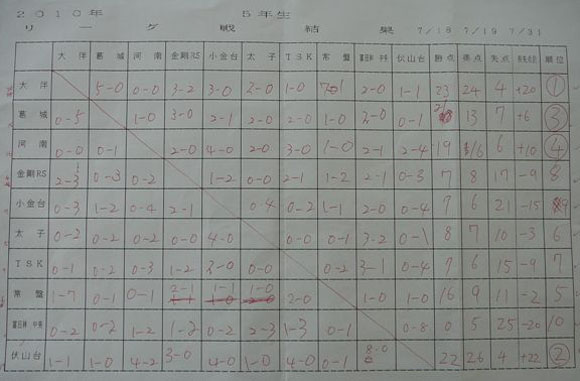 2010年 5年生
リーグ戦結果 7/18 7/19 7/31
大伴 葛城 河南 金剛RS 小金台 太子 TSK 常盤 伏山台 勝点 得点 失点 得失差 順位
大伴 5-0 0-0 3-2 3-0 2-0 1-0 2-0 1-1 23 24 4 +20 ①
葛城 0-5 1-0 3-0 2-1 2-0 2-0 1-0 0-1 13 7 +6 ③
河南 0-0 0-1 2-0 4-0 2-0 3-0 1-0 2-1 2-4 19 6 +10 ④
金剛RS 2-3 0-3 0-2 1-2 0-0 2-1 1-2 2-1 0-3 7 8 17 -9 8
小金台 0-3 1-2 0-4 2-1 0-4 0-2 1-1 2-0 0-4 7 6 21 -15 9
太子 0-2 0-2 0-2 0-0 4-0 0-0 0-1 3-2 0-1 8 7 10 -3 6
TSK 0-1 0-2 0-3 1-2 0-0 0-2 3-1 0-4 7 6 15 -9 7
常盤 1-7 0-1 0-1 2-1 1-1 1-0 2-0 1-0 1-0 16 9 11 -2 5
0-2 0-2 1-2 1-2 0-2 2-3 1-3 0-1 0-8 0 5 25 -20 10
伏山台 1-1 1-0 4-2 3-0 4-0 1-0 4-0 0-1 8-0 22 26 4 +22 ②